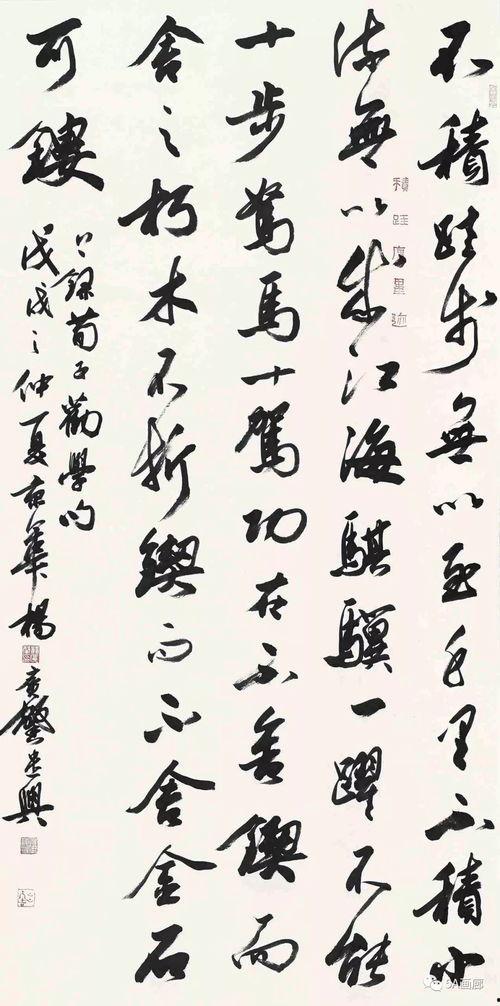 不積跬步無以至千里不積小
流無以成江海騏驥一躍不能
十步駑馬十駕功在不舍鍥而
舍之朽木不折鍥而不舍金石
可鏤
上錄荀子勸學句
戊戌之仲夏京華楊
廣
興
画廊